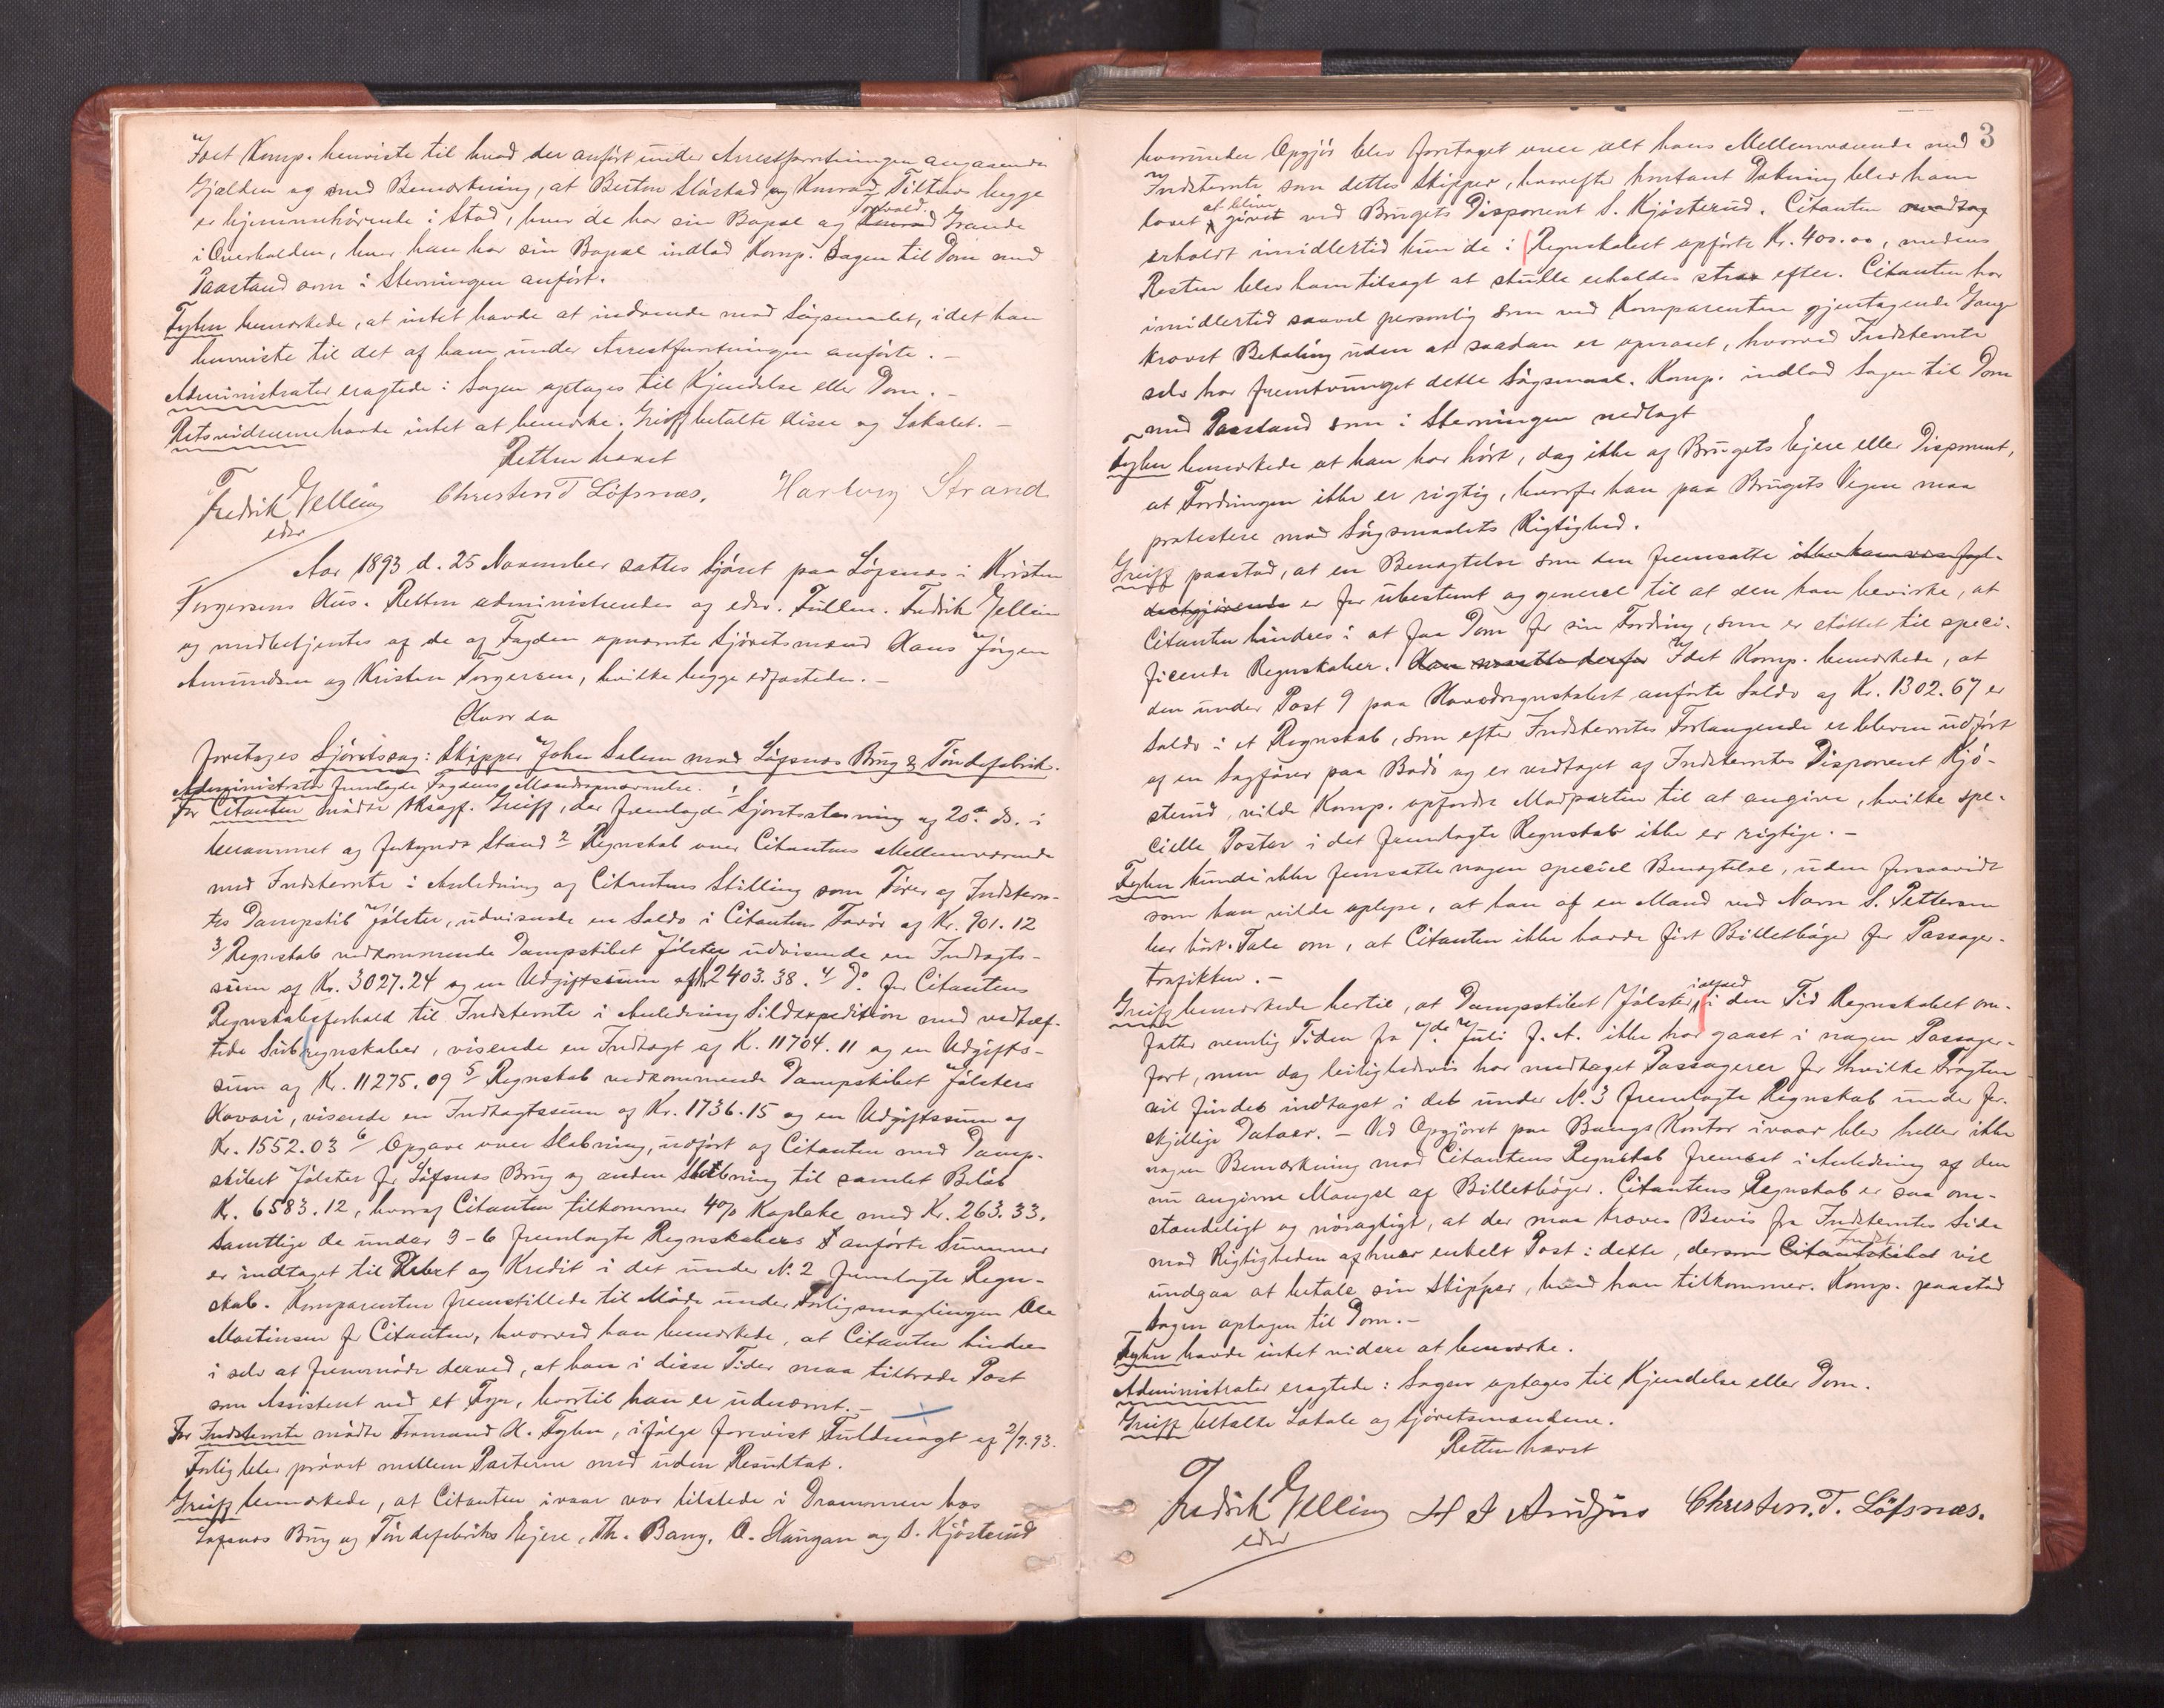 Idet Komp. henviste til hvad der anført under Arrestforretningen angaaende
Gjælden og med Bemærkning, at Berton Slåstad og Konrad Tiltnes begge
er hjemmehørende i Stod, hvor de har sin Bopæl og Konrad Torvald Grande
i Overhalden, hvor han har sin Bopæl indlod Komp. Sagen til Dom med
Paastand som i Stevningen anført.
Fylun bemærkede, at intet havde at indvende mod Søgsmalet, idet han
henviste til det af ham under Arrestforretningen anførte. -
Administrator eragtede: Sagen optages til Kjendelse eller Dom. -
Retsvidnerne havde intet at bemærke. Greiff betalte disse og Lokalet. -
Retten hævet
Fredrik Gelling Christen T Löfsnæs. Hartvig Strand
edsv
Aar 1893 d. 25 November sattes Sjöret paa Löfsnæs i Kristen
Torgersens Hus. Retten administreredes af edsv. Fuldm. Fredrik Gelling
og medbetjentes af de af Fogden opnævnte Sjøretsmænd Hans Jörgen
Amundsen og Kristen Torgersen, hvilke begge edfæstedes. -
Hvor da
foretoges Sjöretssag: Skipper John Salem mod Löfsnæs Brug & Töndefabrik.
Administrator fremlagde Fogdens Mandsopnævnelse.
For Citanten mödte Oksagf. Greiff, der fremlagde 1 Sjøretsstevning af 20. ds. i
berammet og forkyndt Stand 2 Regnskab over Citantens Mellemværende
med Indstevnte i Anledning af Citantens Stilling som Förer af Indstevn-
tes Dampskib Jölster, udvisende en Saldo i Citantens Favör af Kr. 901.12
3/ Regnskab vedkommende Dampskibet Jölster udvisende en Indtægts-
sum af Kr. 3027.24 og en Udgiftssum af Kr 2403.38. 4/ Do. for Citantens
Regnskabsforhold til Indstevnte i Anledning Sildexpedition med vedhæf-
tede Subregnskaber, visende en Indtægt af K. 11704.11 og en Udgifts-
sum af Kr. 11275.09 5/ Regnskab vedkommende Dampskibet Jölsters
Havari, visende en Indtægtssum af Kr. 1736.15 og en Udgiftssum af
Kr. 1552.03 6/ Opgave over Slebning, udfört af Citanten med Damp-
skibet Jölster for Löfsnæs Brug og anden Slebning til samlet Belöb
Kr. 6583.12, hvoraf Citanten tilkommer 4% Kaplake med Kr. 263.33.
Samtlige de under 3-6 fremlagte Regnskabers anförte Summer
er indtaget til Debet og Kredit i det under N. 2 fremlagte Regn-
skab. Komparenten fremstillede til Möde under Forligsmæglingen Ole
Martinsen for Citanten, hvorved han bemærkede, at Citanten hindres
i selv at fremmöde derved, at han i disse Tider maa tiltræde Post
som Assistent ved et Fyr, hvortil han er udnævnt. -
For Indstevnte mödte Formand H. Fylun, ifölge forevist Fuldmagt af 2/9.93.
Forlig blev prövet mellem Parterne med uden Resultat.
Greiff bemærkede, at Citanten ivaar var tilstede i Drammen hos
Lofsnæs Brug og Töndefabriks Eiere, Th. Bang, O. Haugan og S. Kjösterud
3
hvorunder Opgjör blev foretaget over alt hans Mellemværende med
Indstevnte som dettes Skipper, hvorefter kontant Dækning blev ham
lovet at blive gjöret ved Brugets Disponent S. Kjösterud. Citanten modtog
erholdt imidlertid kun de i Regnskabet opførte Kr. 400.00, medens
Resten blev ham tilsagt at skulle erholdes strax efter. Citanten har
imidlertid saavel personlig som ved Komparenten gjentagende Gange
krævet Betaling uden at saadan er opnaaet, hvorved Indstevnte
selv har fremtvunget dette Sögsmaal. Komp. indlod Sagen til Dom
med Paastand som i Stevningen nedlagt
Fylun bemærkede at han har hört, dog ikke af Brugets Ejere eller Disponent,
at Fordringen ikke er rigtig, hvorfor han paa Brugets Vegne maa
protestere mod Sögsmaalets Rigtighed.
Greiff paastod, at en Benægtelse som den fremsatte ikke kan være fyl-
destgjörende er for ubestemt og generel til at den kan bevirke, at
Citanten hindres i at faa Dom for sin Fordring, som er støttet til speci-
ficerede Regnskaber. Idet Komp. bemærkede, at
den under Post 9 paa Hovedregnskabet anførte Saldo af Kr. 1302.67 er
Saldo i et Regnskab, som efter Indstevntes Forlangende er bleven udfört
af en Sagförer paa Bodö og er vedtaget af Indstevntes Disponent Kjö-
sterud, vilde Komp. opfordre Modparten til at angive, hvilke spe-
cielle Poster i det fremlagte Regnskab ikke er rigtige. -
Fylun kunde ikke fremsætte nogen speciel Benægtelse, uden forsaavidt
som han vilde oplyse, at han af en Mand ved Navn S. Pettersen
har hört Tale om, at Citanten ikke havde fört Billetböger for Passager-
trafikken. -
Greiff bemærkede hertil, at Dampskibet Jölster, ialfald i den Tid Regnskabet om-
fatter nemlig Tiden fra 7de Juli f. A. ikke har gaaet i nogen Passager-
fart, men dog leilighedsvis har medtaget Passagerer for hvilke Fragten
vil findes indtaget i det under N. 3 fremlagte Regnskab under for-
skjellige Datoer. - Ved Opgjöret paa Bangs Kontor ivaar blev heller ikke
nogen Bemærkning mod Citantens Regnskab fremsat i Anledning af den
nu angivne Mangel af Billetböger. Citantens Regnskab er saa om-
stændeligt og nöiagtigt, at der maa kræves Bevis fra Indstevntes Side
mod Rigtigheden af hver enkelt Post i dette, dersom Indst. vil
undgaa at betale sin Skipper, hvad han tilkommer. Komp. paastod
Sagen optagen til Dom. -
Fylun havde intet videre at bemærke.
Administrator eragtede: Sagen optages til Kjendelse eller Dom.
Greiff betalte Lokale og Sjöretsmændene.
Retten hævet
Fredrik Gelling H J Christen. T. Löfsnæs.
edsv